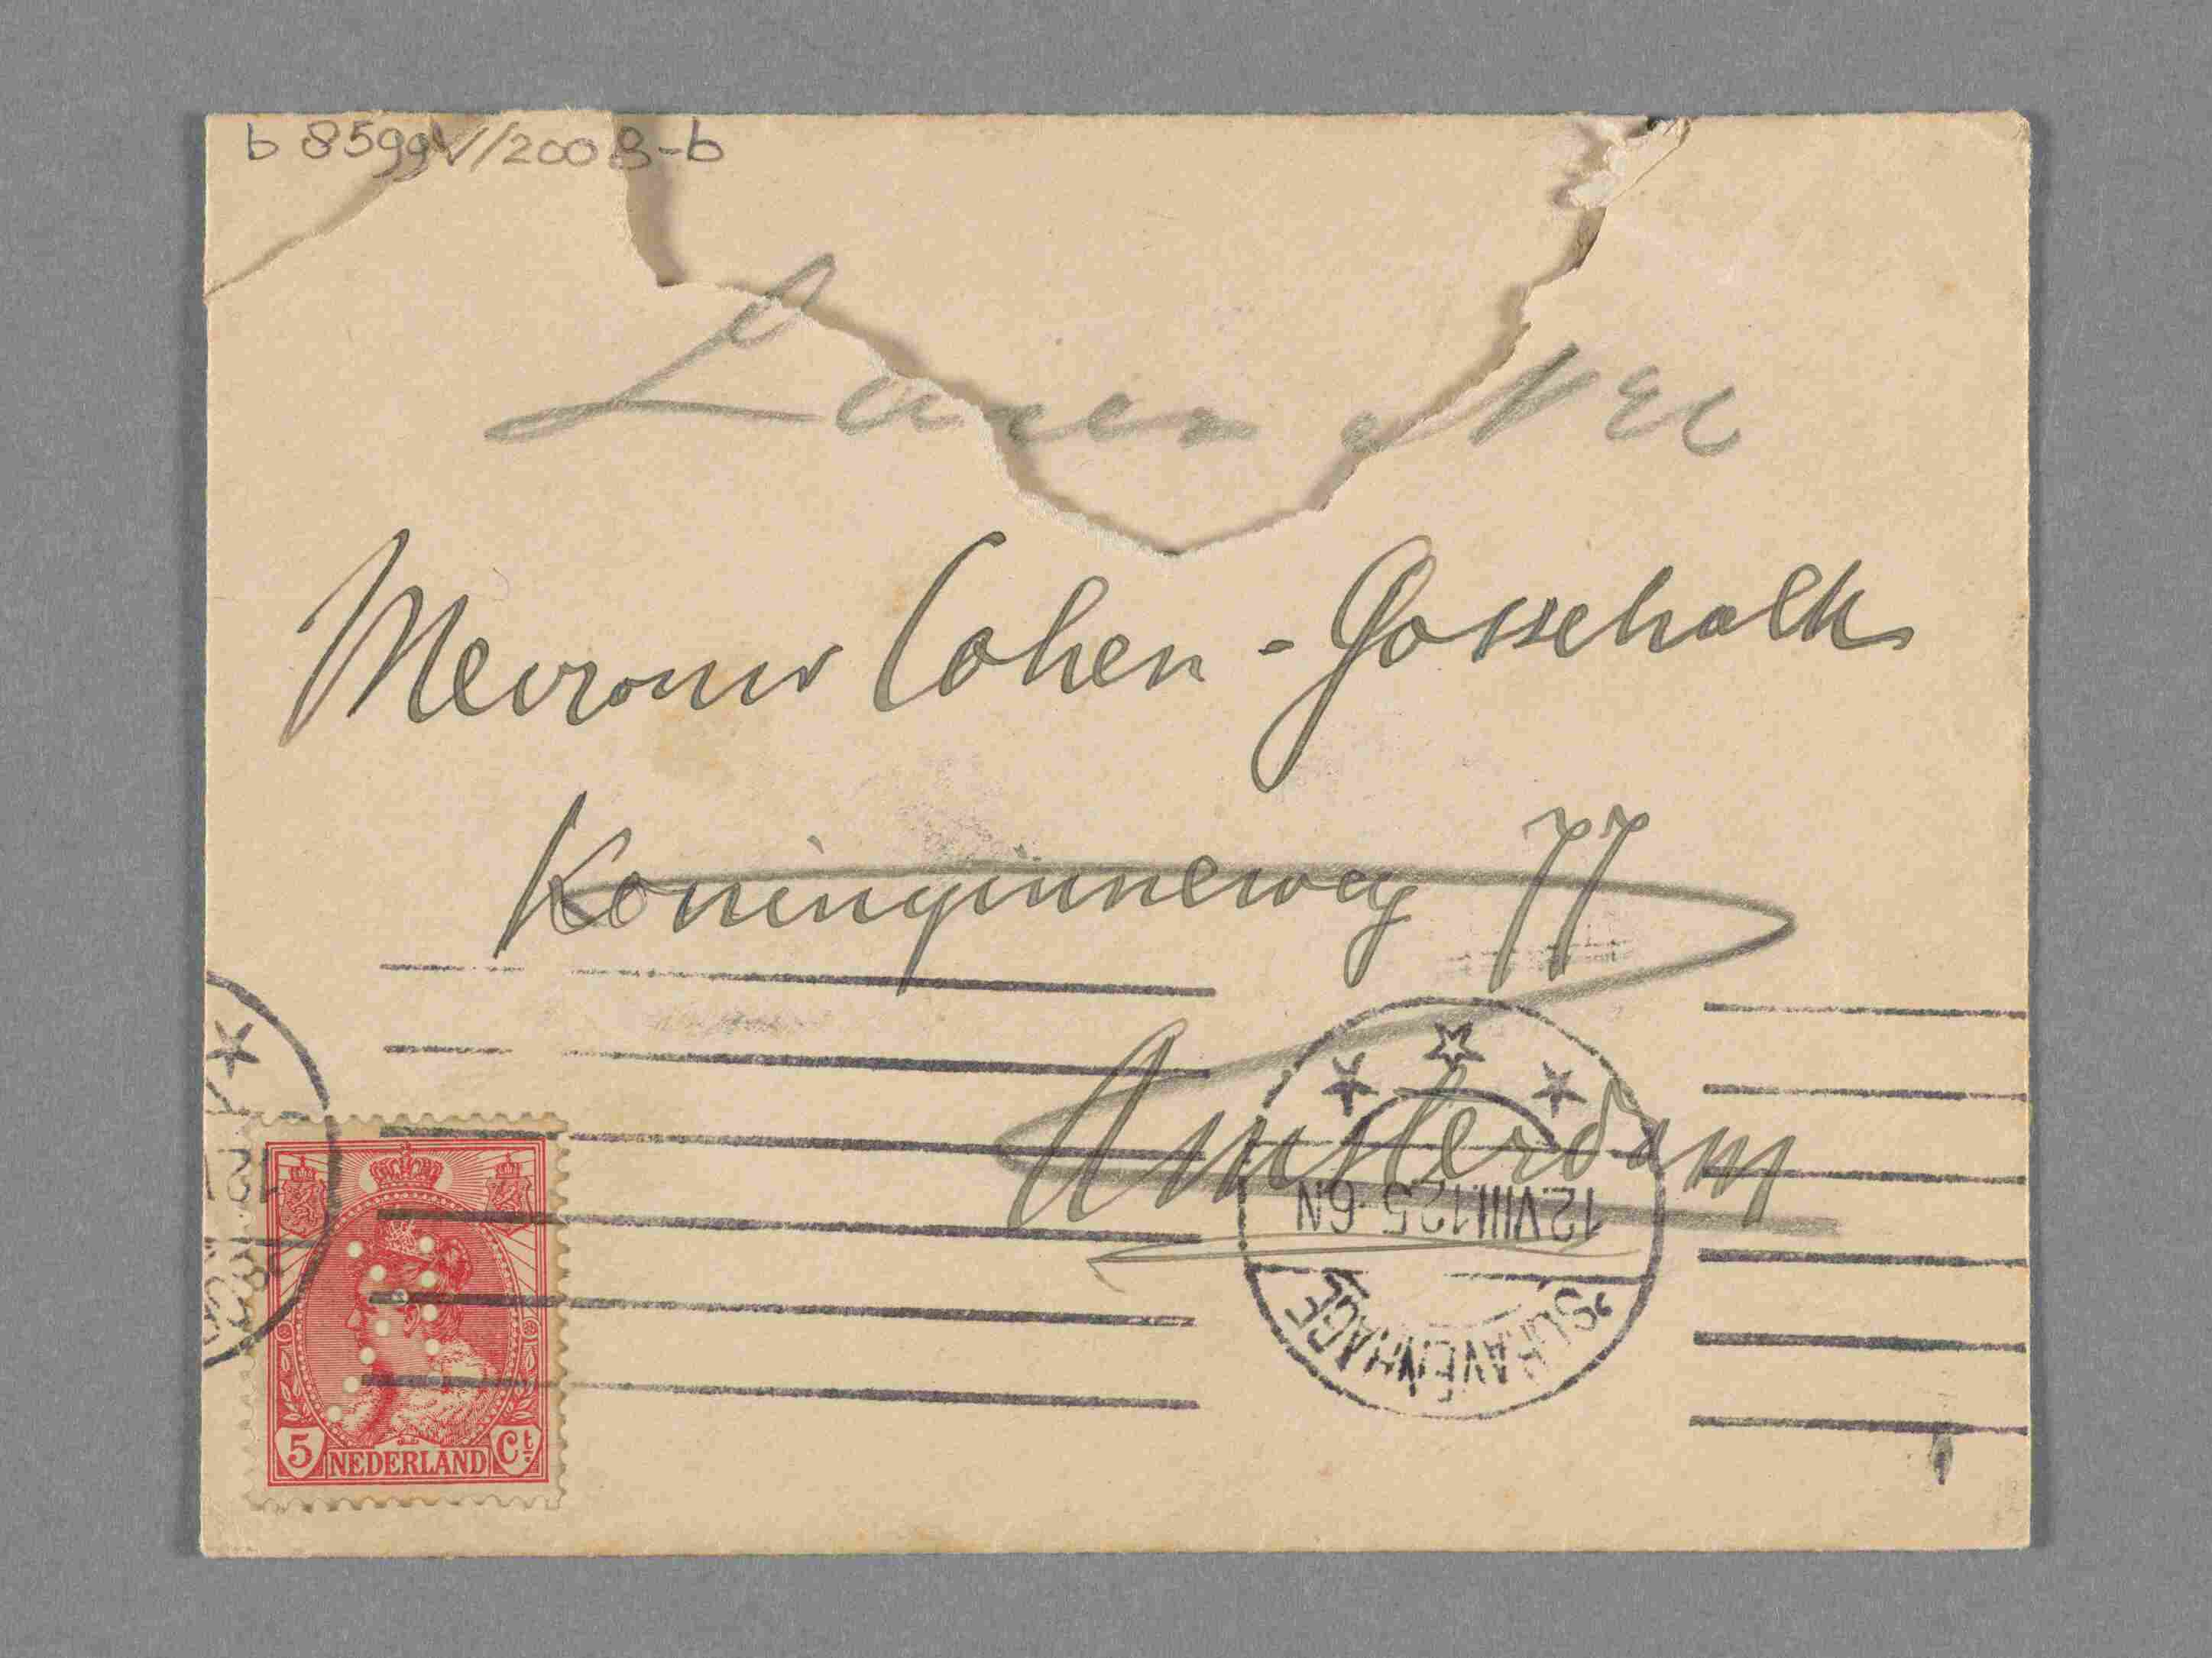 b 8599V/2003-b
Laren
Mevrouw Cohen-Gosschalk
Koninginneweg 77
Amsterdam
12.VIII.12 5-6N
'SGRAVENHAGE
5 NEDERLAND Ct